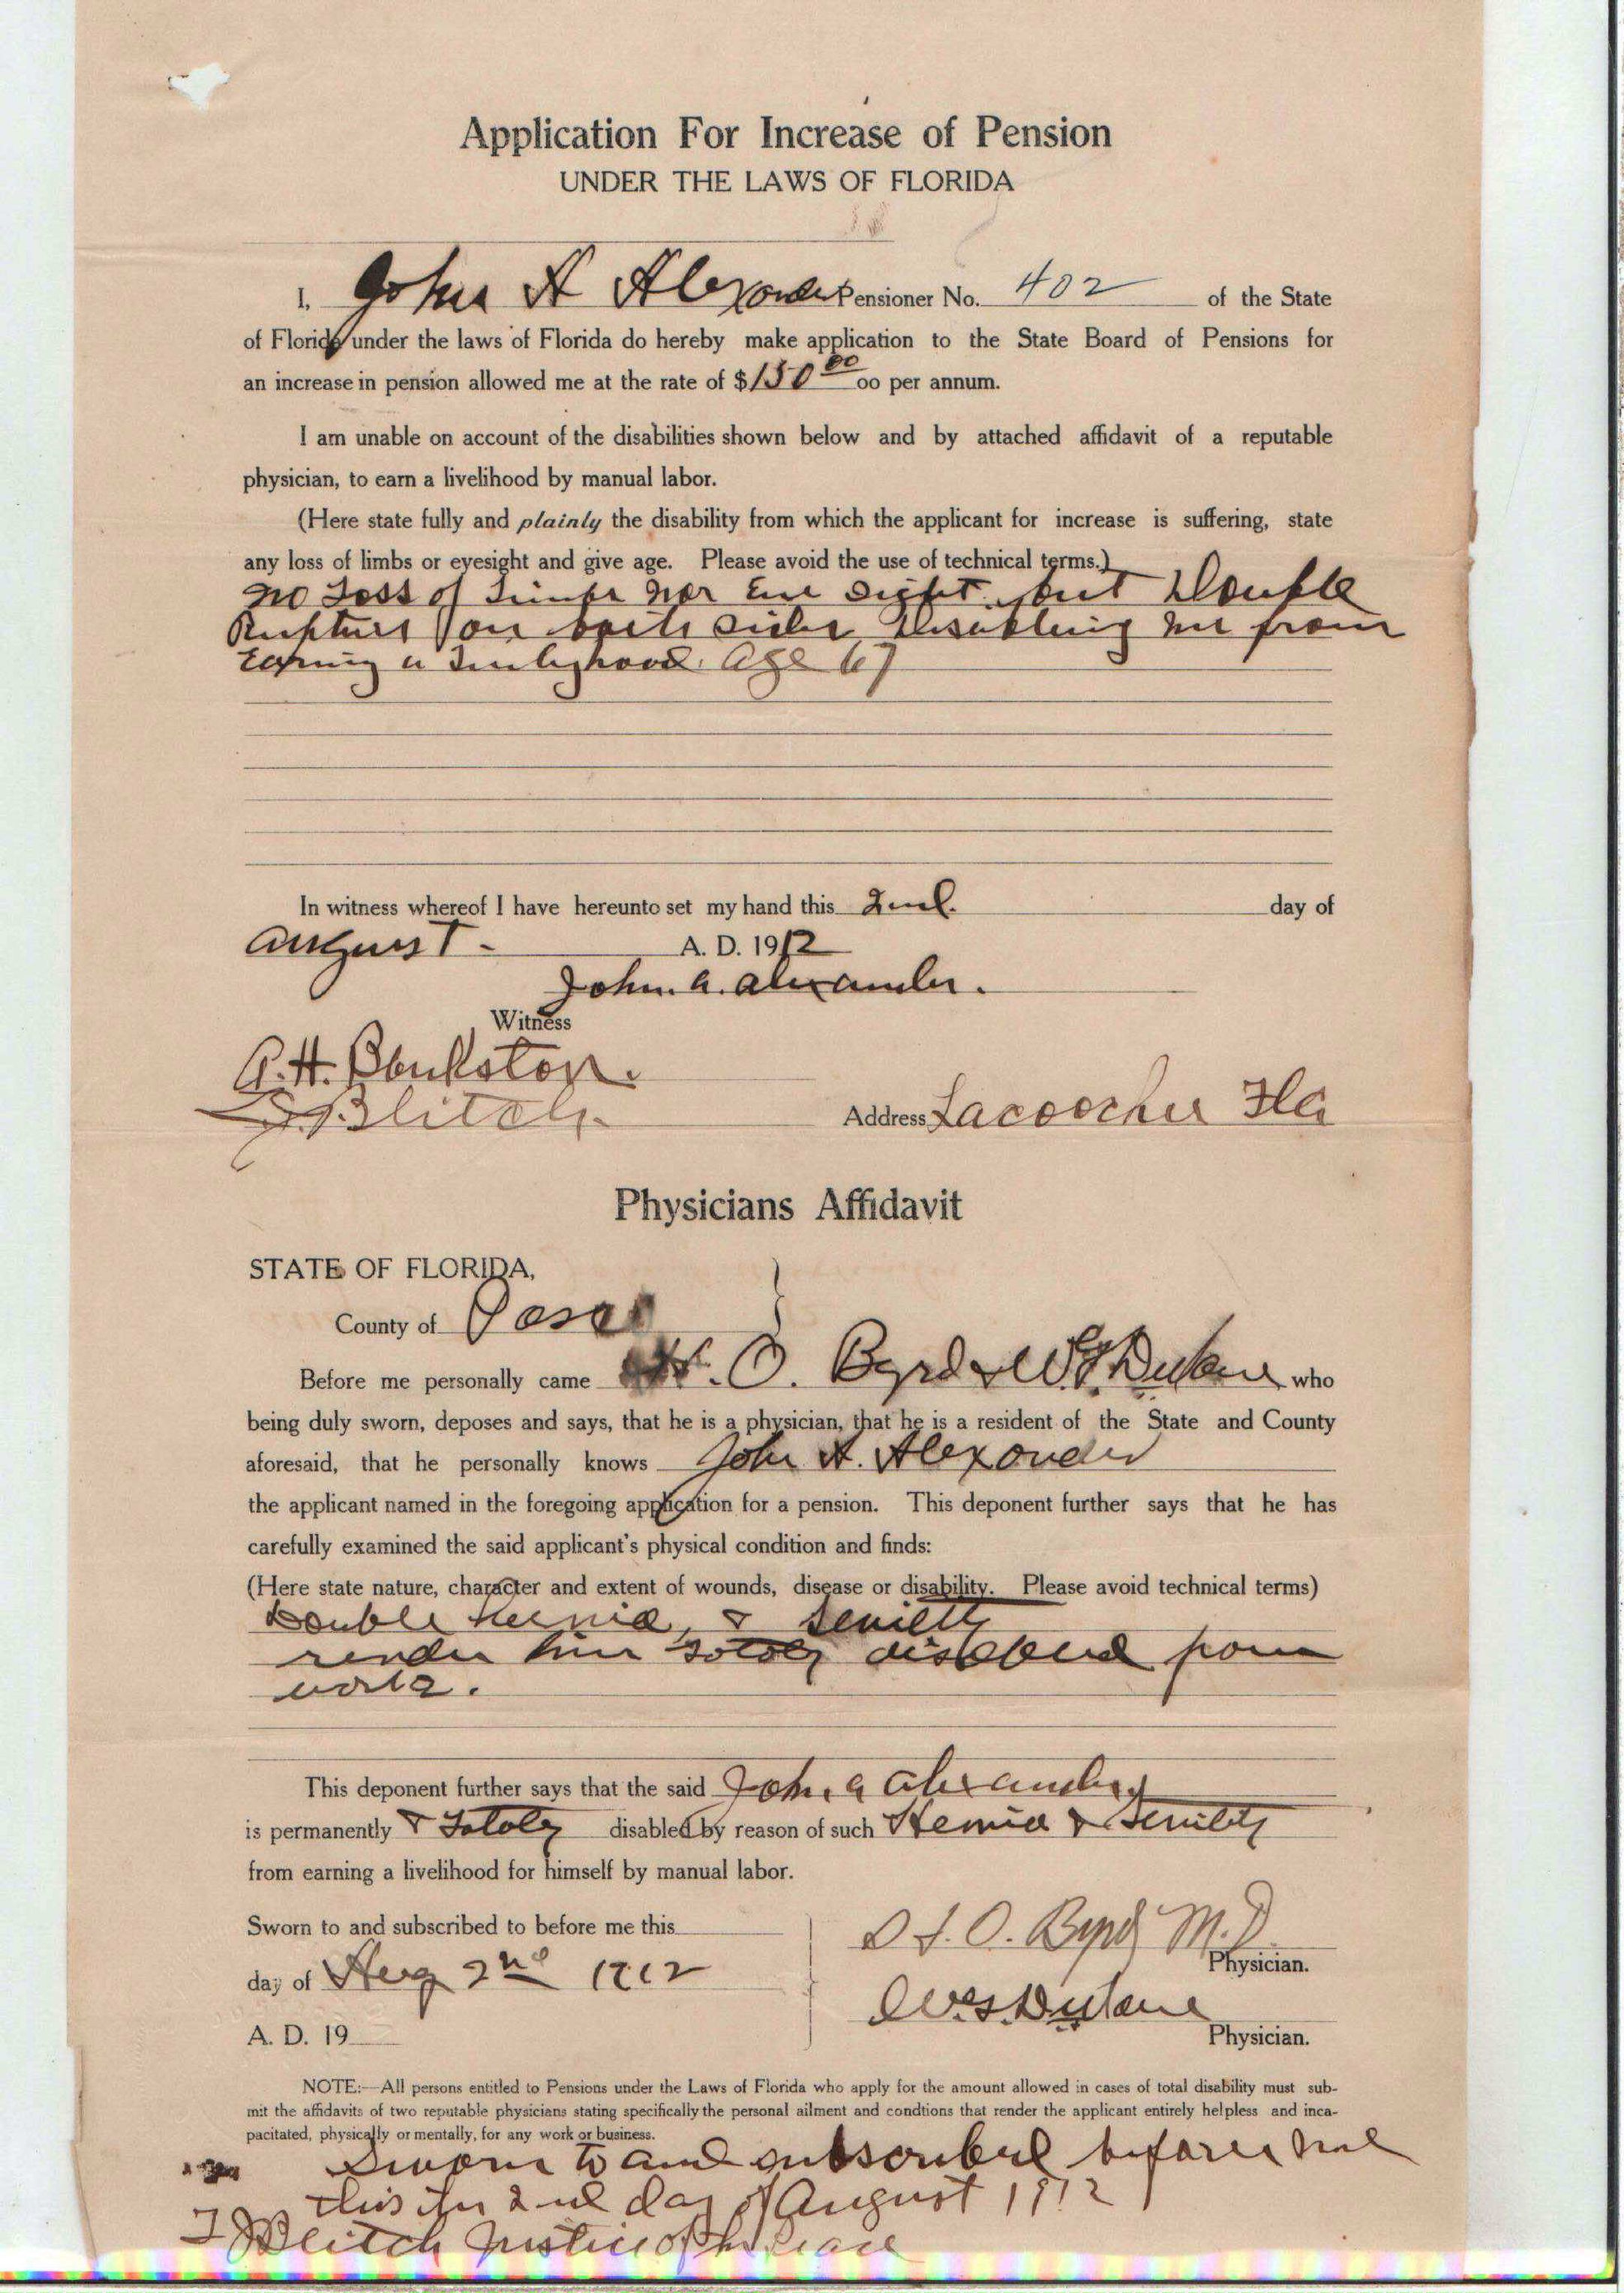 Application For Increase of Pension
UNDER THE LAWS OF FLORIDA
I, John A Alexander Pensioner No. 402 of the State
of Florida under the laws of Florida do hereby make application to the State Board of Pensions for
an increase in pension allowed me at the rate of $150 00 oo per annum.
I am unable on account of the disabilities shown below and by attached affidavit of a reputable
physician, to earn a livelihood by manual labor.
(Here state fully and plainly the disability from which the applicant for increase is suffering, state
any loss of limbs or eyesight and give age. Please avoid the use of technical terms.)
no Loss of Limbs nor Eye Sight. but Double
Rupture on both sides Disabling me from
Earning a age 67
In witness whereof I have hereunto set my hand this 2nd. day of
August - A. D. 1912
John. a. alexander.
Witness
A.H. Bankston.
Blitch.
Address Lacoochee Fla
Physicians Affidavit
STATE OF FLORIDA,
County of Pasco
Before me personally came O. Byrd & W.S. Dulane who
being duly sworn, deposes and says, that he is a physician, that he is a resident of the State and County
aforesaid, that he personally knows John A. Alexander
the applicant named in the foregoing application for a pension. This deponent further says that he has
carefully examined the said applicant's physical condition and finds:
(Here state nature, character and extent of wounds, disease or disability. Please avoid technical terms)
Double hernia, & senility
render him totoly from
work.
This deponent further says that the said John. a alexander
is permanently & Totoly disabled by reason of such Hernia & Senility
from earning a livelihood for himself by manual labor.
Sworn to and subscribed to before me this
day of Aug 2nd 1912
A. D. 19
O. Byrd M.D.
Physician.
W.S. Dulane
Physician.
NOTE:—All persons entitled to Pensions under the Laws of Florida who apply for the amount allowed in cases of total disability must sub-
mit the affidavits of two reputable physicians stating specifically the personal ailment and condtions that render the applicant entirely helpless and inca-
pacitated, physically or mentally, for any work or business.
Sworn to and subscribed before me
this the 2nd day of August 1912
Blitch Justice of the Peace